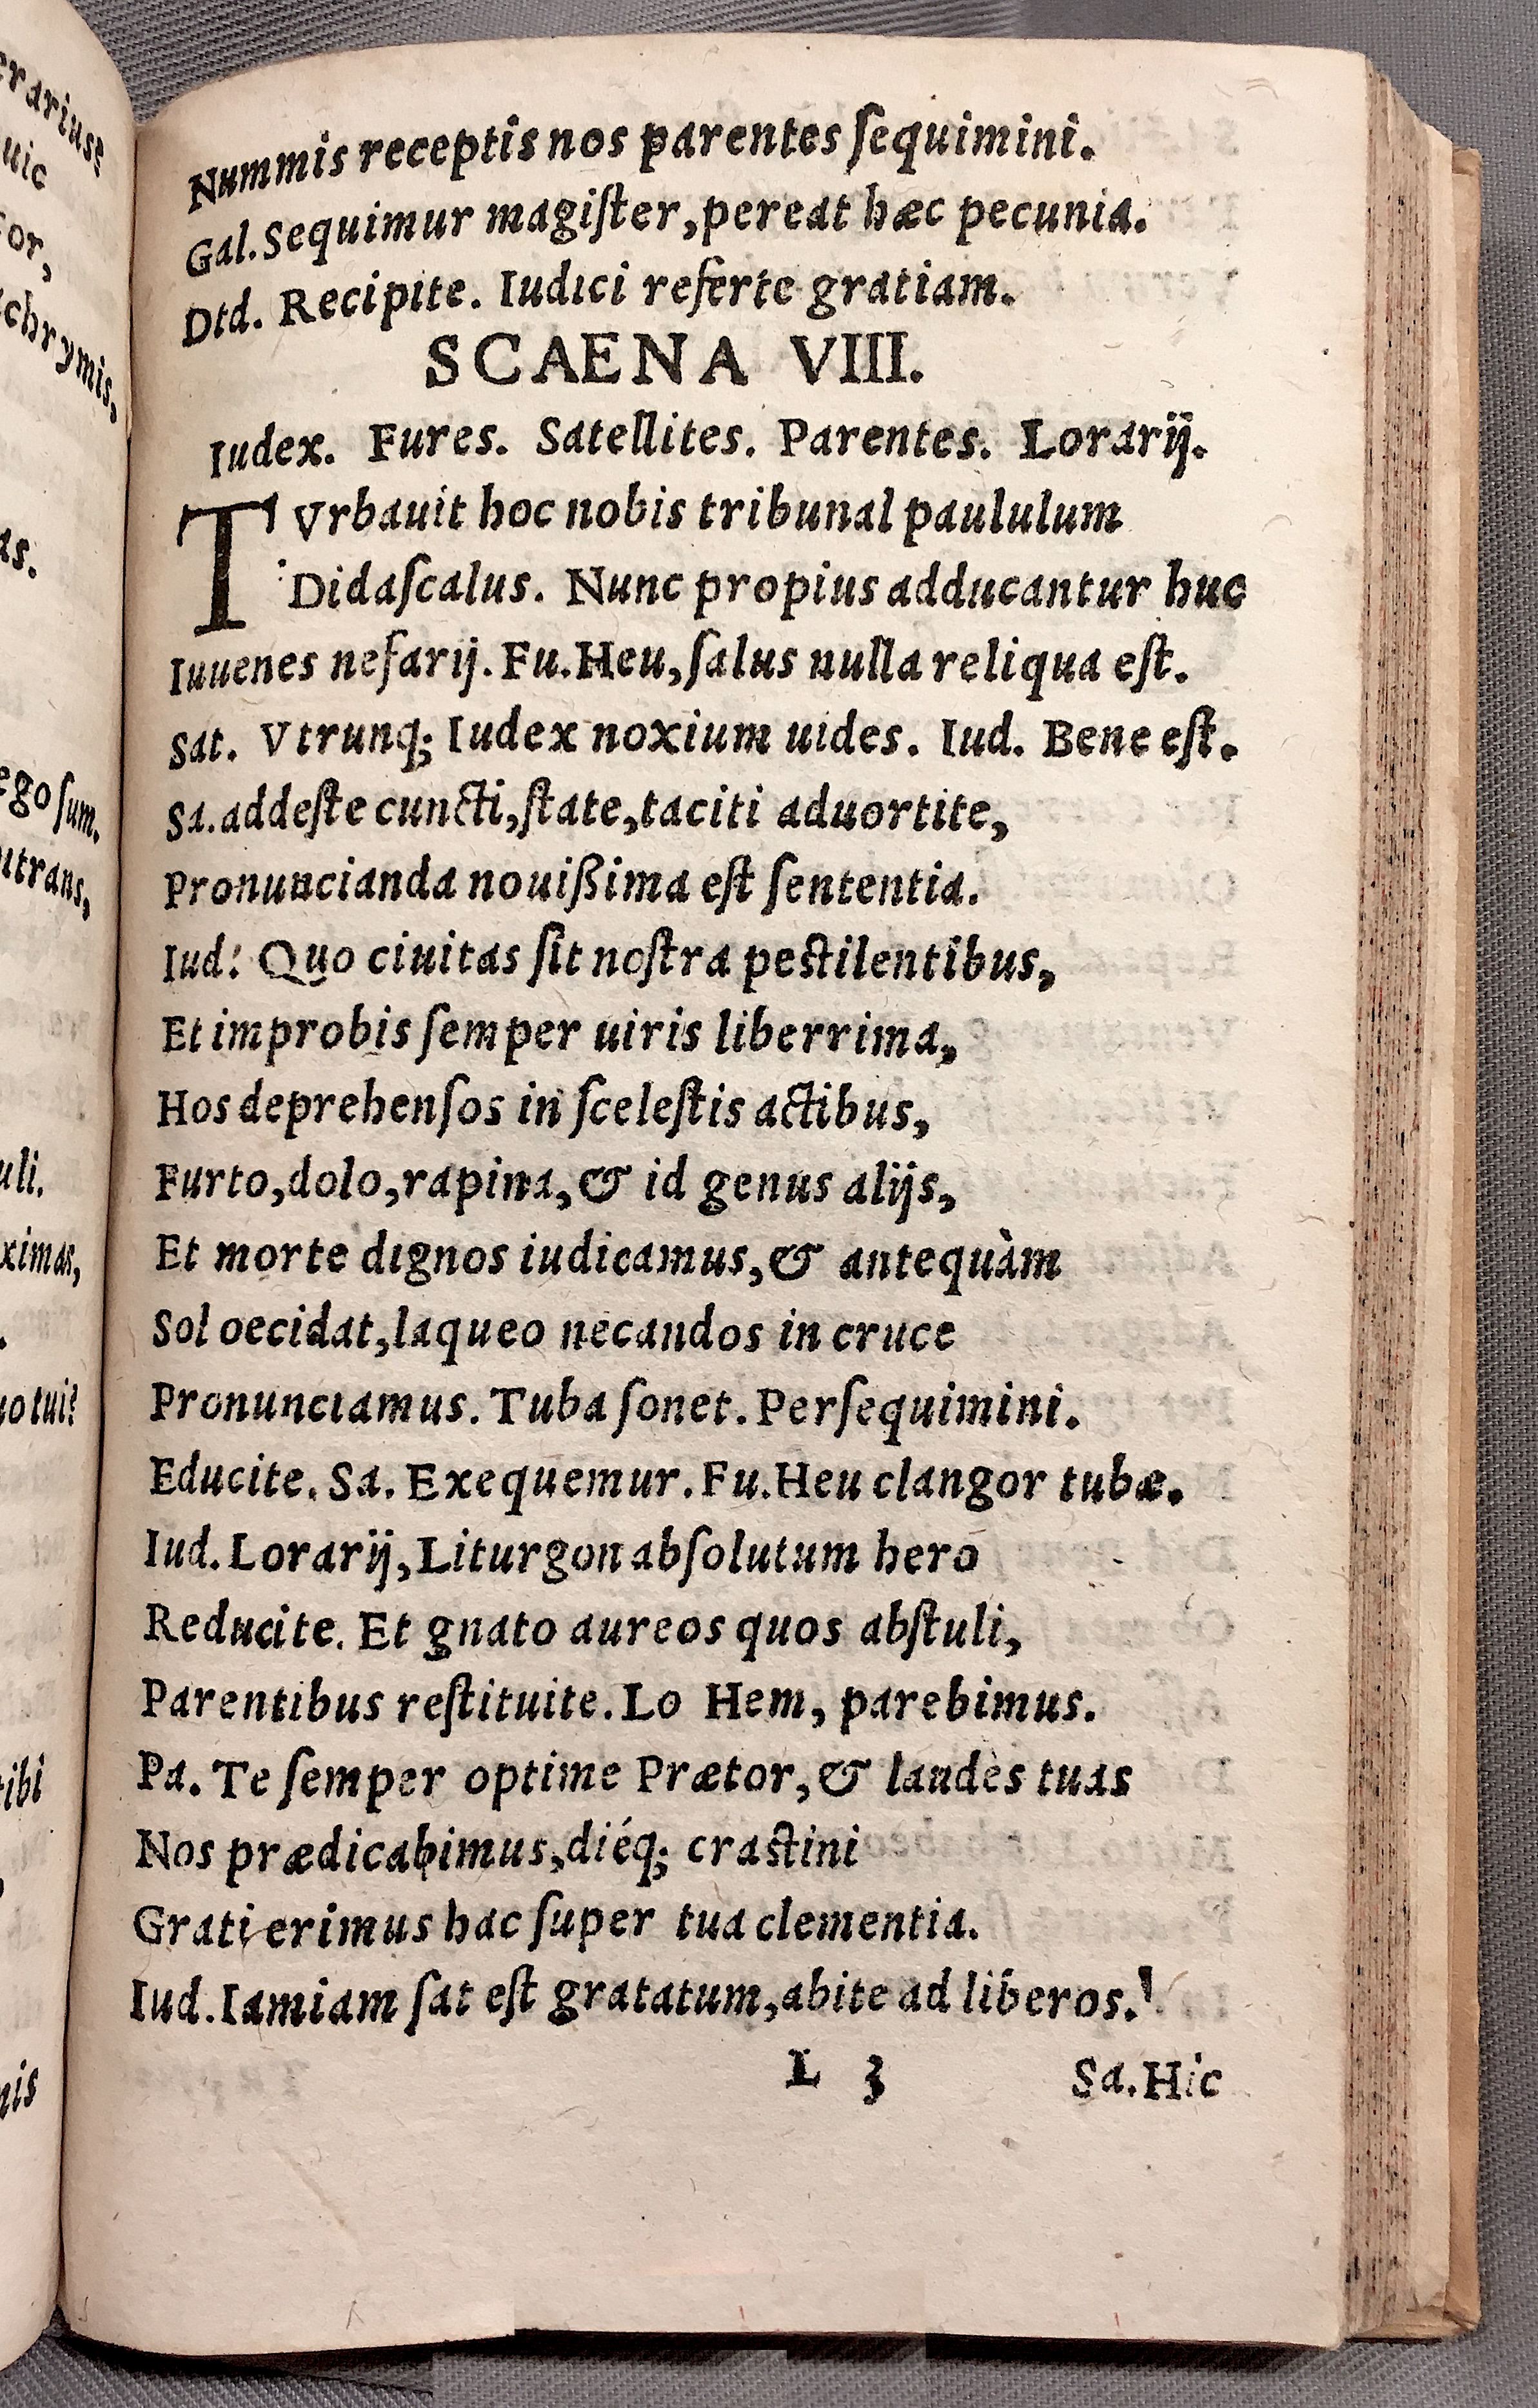 Nummis receptis nos parentes ſequimini.
Gal. Sequimur magiſter, pereat hæc pecunia.
Dtd. Recipite. Iudici referte gratiam.
SCAENA VIII.
Iudex. Fures. Satellites. Parentes. Lorarij.
TVrbauit hoc nobis tribunal paululum
Didaſcalus. Nunc propius adducantur huc
Iuuenes nefarij. Fu. Heu, ſalus nulla reliqua eſt.
Sat. Vtrunq; Iudex noxium uides. Iud. Bene eſt.
Sa. addeſte cuncti, ſtate, taciti aduortite,
Pronuncianda nouißima eſt ſententia.
Iud: Quo ciuitas ſit noſtra peſtilentibus,
Et improbis ſemper uiris liberrima,
Hos deprehenſos in ſceleſtis actibus,
Furto, dolo, rapina, & id genus alijs,
Et morte dignos iudicamus, & antequàm
Sol oecidat, laqueo necandos in cruce
Pronunciamus. Tuba ſonet. Perſequimini.
Educite. Sa. Exequemur. Fu. Heu clangor tubæ.
Iud. Lorarij, Liturgon abſolutum hero
Reducite. Et gnato aureos quos abſtuli,
Parentibus reſtituite. Lo Hem, parebimus.
Pa. Te ſemper optime Prætor, & laudes tuas
Nos prædicabimus, diéq; craſtini
Grati erimus hac ſuper tua clementia.
Iud. Iamiam ſat eſt gratatum, abite ad liberos.
L 3 Sa. Hic